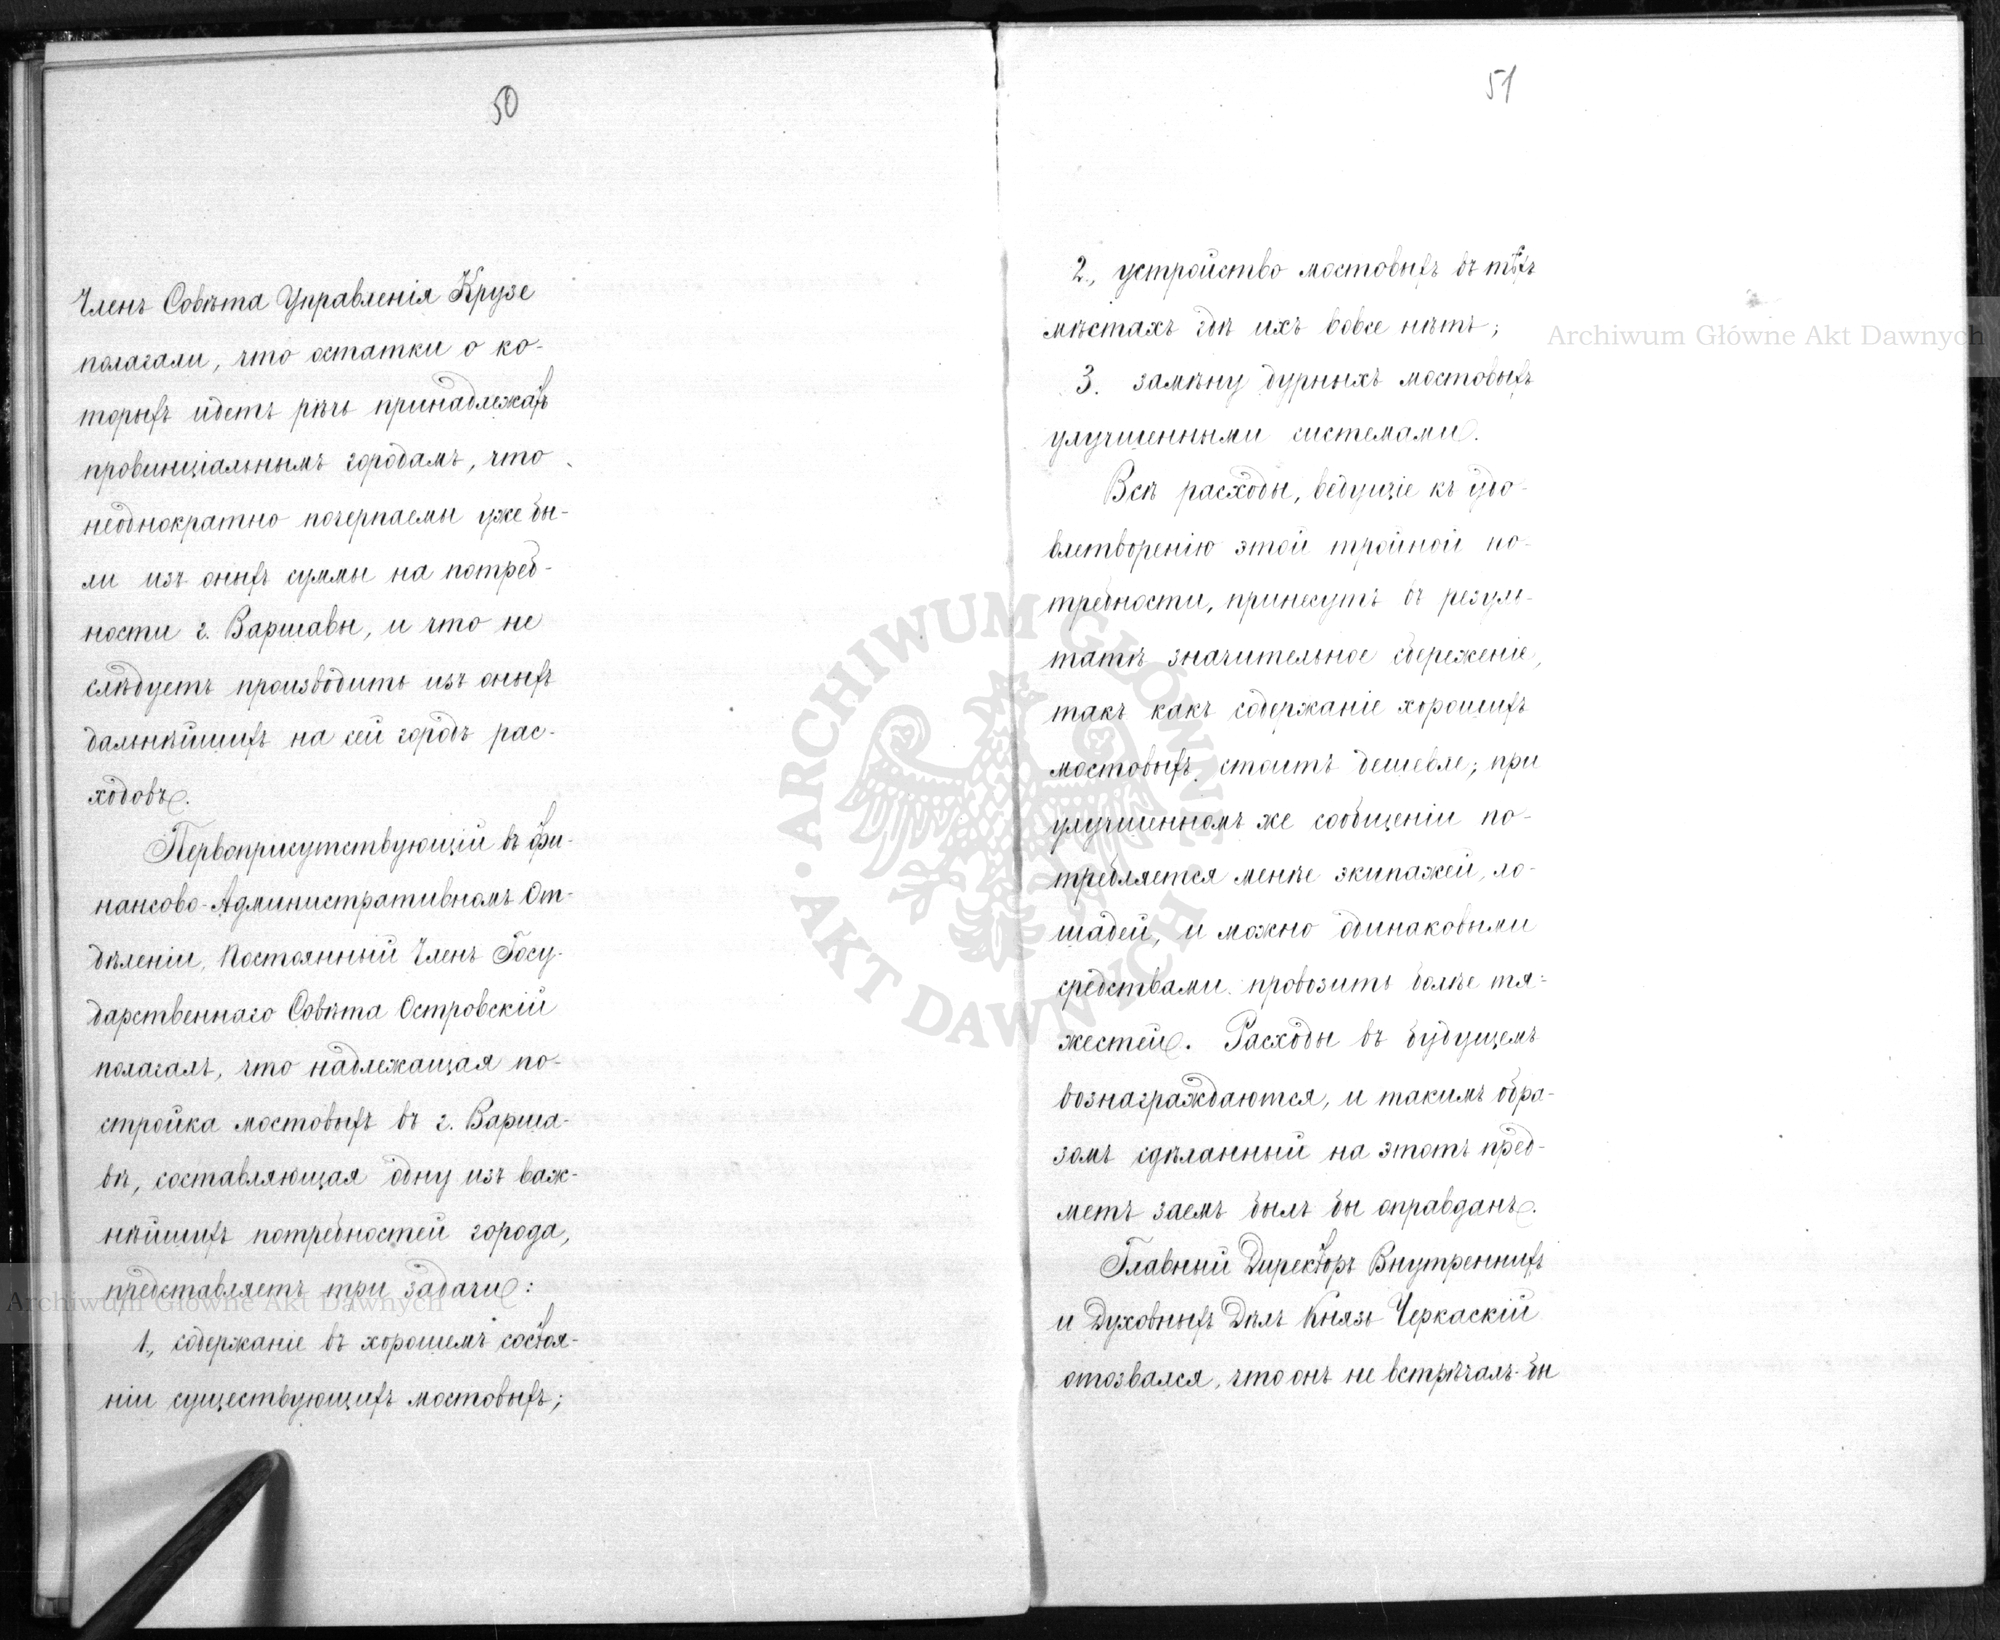 50
Членъ Совѣта Управленія Крузе
полагали, что остатки о ко-
торыхъ идетъ рѣчь принадлежатъ
провинціальнымъ городамъ, что
неоднократно почерпаемы уже бы-
ли изъ оныхъ суммы на потреб-
ности г. Варшавы, и что не
слѣдуетъ производить изъ оныхъ
дальнѣйшихъ на сей городъ рас-
ходовъ.
Первоприсутствующій въ Фи-
нансово-Административномъ От-
дѣленіи, Постоянный Членъ Госу-
дарственнаго Совѣта Островскій
полагалъ, что надлежащая по-
стройка мостовыхъ въ г. Варша-
вѣ, составляющая одну изъ важ-
нѣйшихъ потребностей города,
представляетъ три задачи:
1., содержаніе въ хорошемъ состоя-
ніи существующихъ мостовыхъ;
51
2., устройство мостовыхъ въ тѣхъ
мѣстахъ гдѣ ихъ вовсе нѣтъ;
3. замѣну дурныхъ мостовыхъ
улучшенными системами.
Всѣ расходы, ведущіе къ удо-
влетворенію этой тройной по-
требности, принесутъ въ резуль-
татѣ значительное сбереженіе,
такъ какъ содержаніе хорошихъ
мостовыхъ стоитъ дешевле; при
улучшенномъ же сообщеніи по-
требляется менѣе экипажей, ло-
шадей, и можно одинаковыми
средствами провозить болѣе тя-
жестей. Расходы въ будущемъ
вознаграждаются, и такимъ обра-
зомъ сдѣланный на этотъ пред-
метъ заемъ былъ бы оправданъ.
Главный Директоръ Внутреннихъ
и Духовныхъ Дѣлъ Князь Черкаскій
отозвался, что онъ не встрѣчалъ-бы
ARCHIWUM GŁÓWNE AKT DAWNYCH
Archiwum Główne Akt Dawnych
Archiwum Główne Akt Dawnych